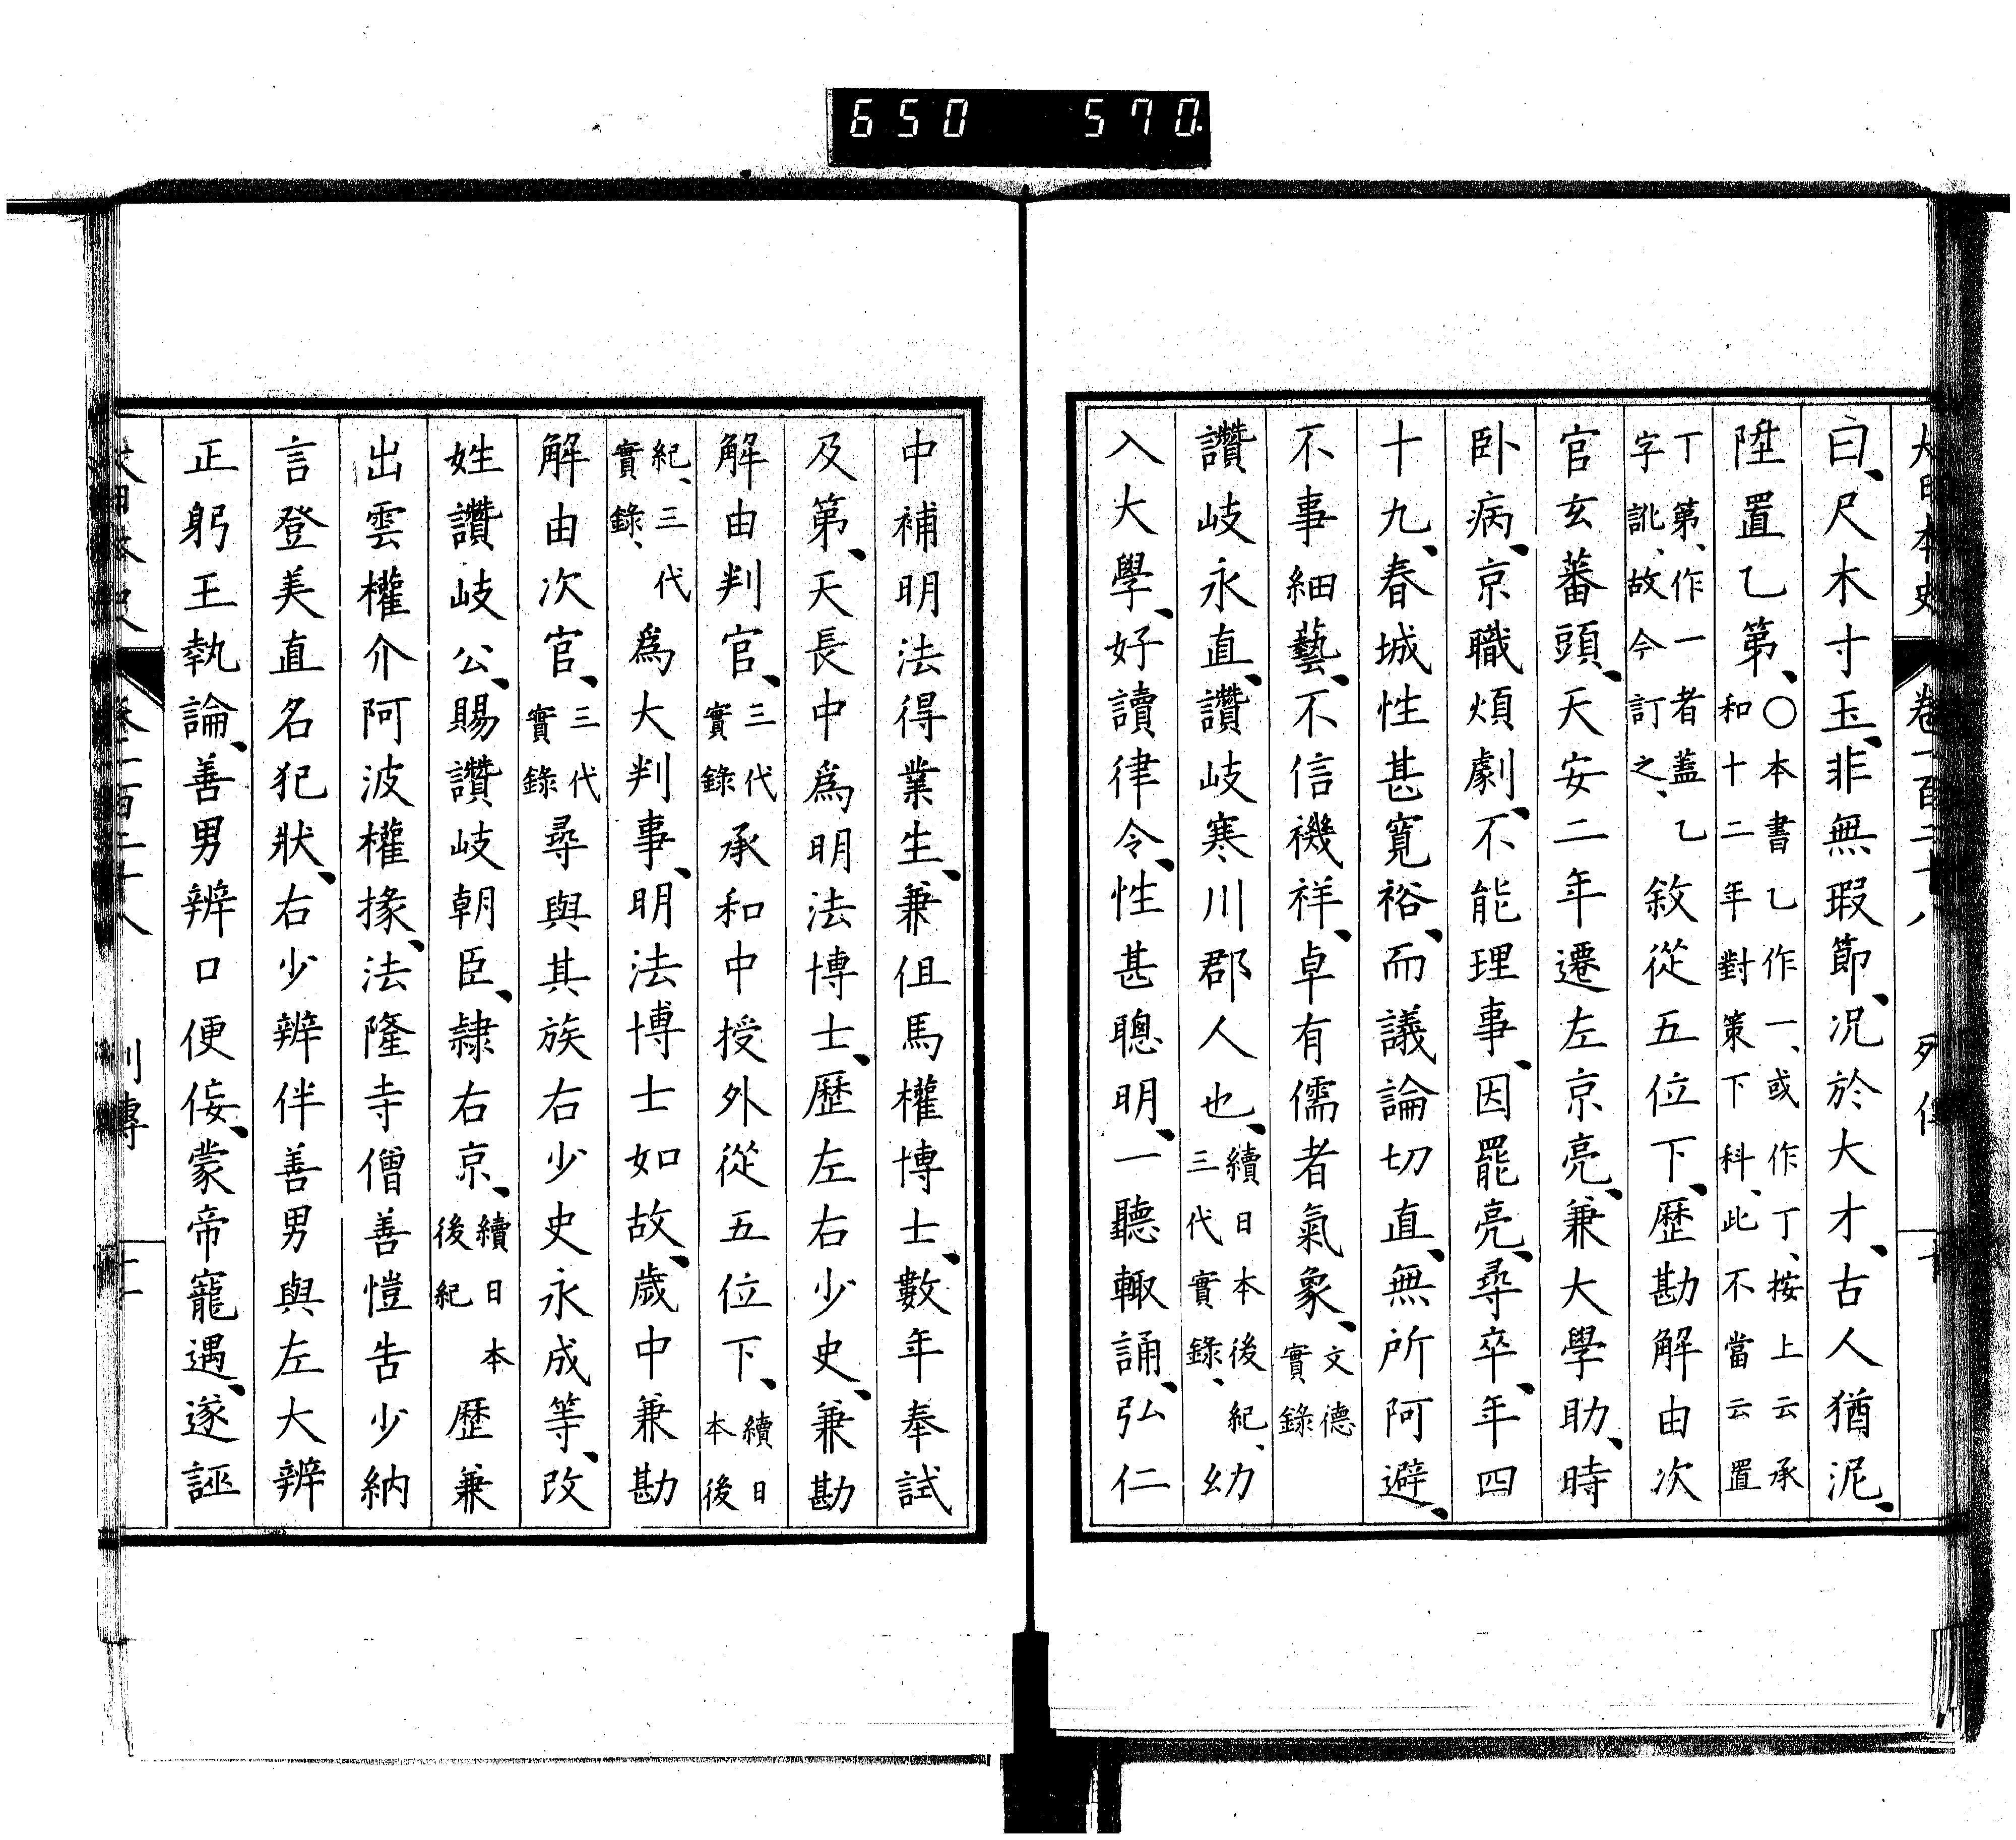 大日本史 卷一百二十八 列傳 十
曰、尺木寸玉、非無瑕節、況於大才、古人猶泥、
陞置乙第、〇本書乙作一、或作丁、按上云承和十二年對策下科、此不當云置
丁第、作一者蓋乙字訛、故今訂之、敘從五位下、歷勘解由次
官玄蕃頭、天安二年遷左京亮、兼大學助、時
卧病、京職煩劇、不能理事、因罷亮、尋卒、年四
十九、春城性甚寬裕、而議論切直、無所阿避、
不事細藝、不信禨祥、卓有儒者氣象、文德實錄
讚岐永直、讚岐寒川郡人也、續日本後紀、三代實錄、幼
入大學、好讀律令、性甚聰明、一聽輙誦、弘仁
中補明法得業生、兼但馬權博士、數年奉試
及第、天長中爲明法博士、歷左右少史、兼勘
解由判官、三代實錄承和中授外從五位下、續日本後
紀、三代實錄、爲大判事、明法博士如故、歲中兼勘
解由次官、三代實錄尋與其族右少史永成等、改
姓讚岐公、賜讚岐朝臣、隷右京、續日本後紀歷兼
出雲權介阿波權掾、法隆寺僧善愷告少納
言登美直名犯狀、右少辨伴善男與左大辨
正躬王執論、善男辨口便佞、蒙帝寵遇、遂誣
大日本史 卷一百二十八 列傳 十一
650 570.